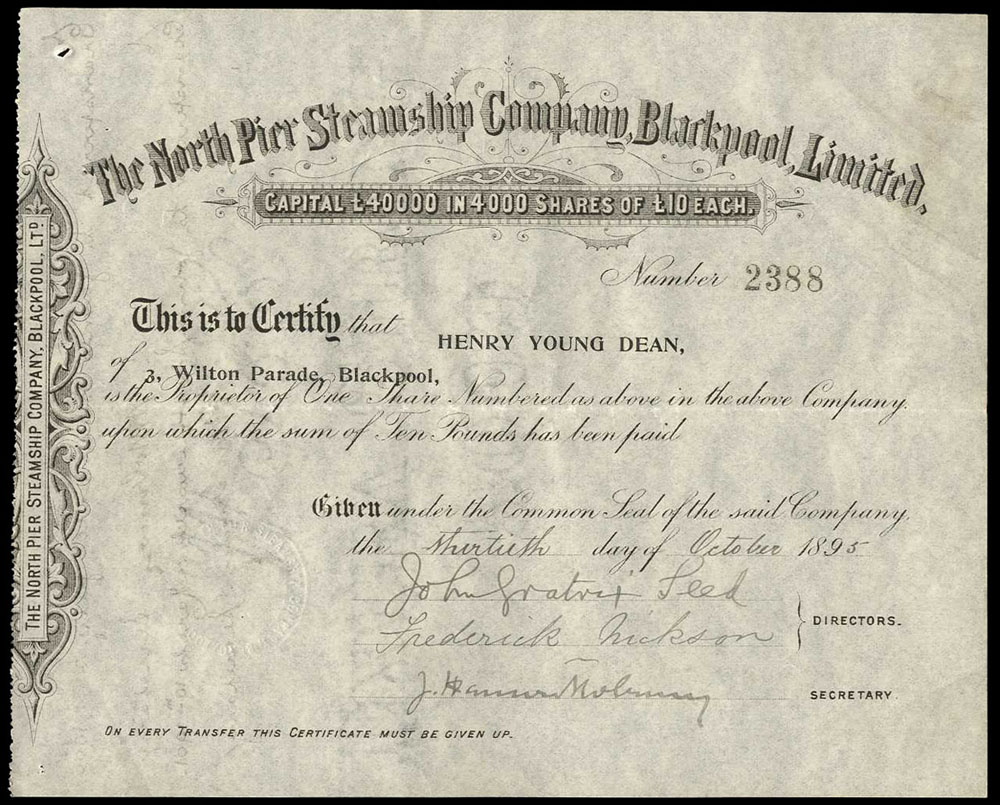 The North Pier Steamship Company, Blackpool, Limited.
CAPITAL £40000 IN 4000 SHARES OF £10 EACH.
Number 2388
This is to Certify that
HENRY YOUNG DEAN,
of 3, Wilton Parade, Blackpool,
is the Proprietor of One Share Numbered as above in the above Company.
upon which the sum of Ten Pounds has been paid
Given under the Common Seal of the said Company.
the thirtieth day of October 1895
John Gratrix Seed
Frederick Nickson
DIRECTORS.
J.
SECRETARY.
ON EVERY TRANSFER THIS CERTIFICATE MUST BE GIVEN UP.
THE NORTH PIER STEAMSHIP COMPANY, BLACKPOOL, LTD.